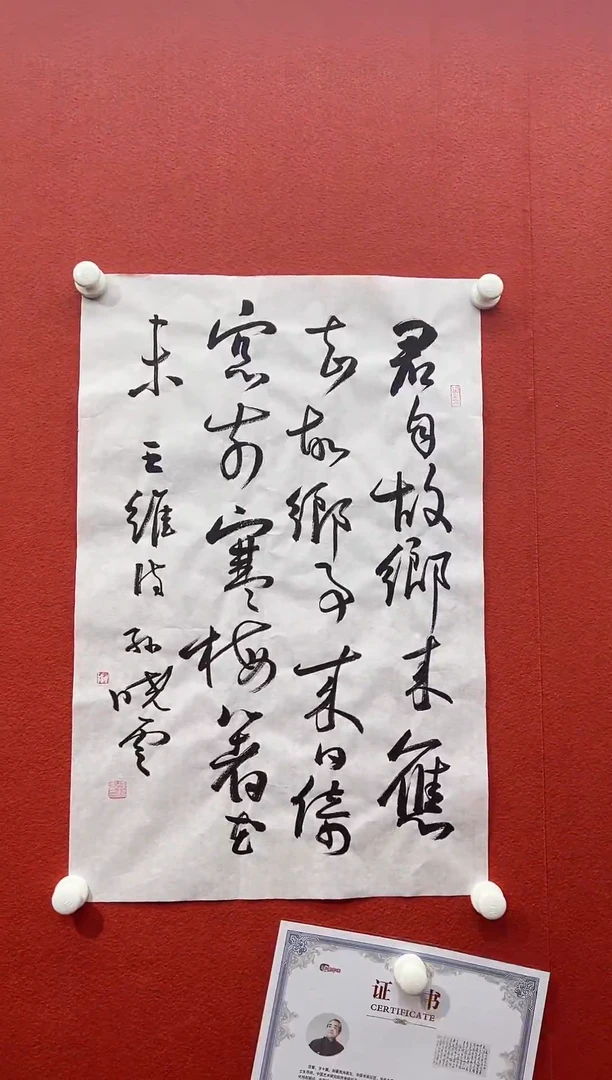 君自故鄉来應
知故鄉事来日綺
窓前寒梅著花
未 王維詩 孫曉雲
证书
CERTIFICATE